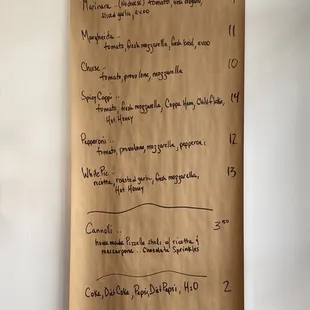 Marinara .. (No Cheese) tomato, fresh oregano,
sliced garlic, evoo
Margherita .. 11
tomato, fresh mozzarella, fresh basil, evoo
Cheese .. 10
tomato, provolone, mozzarella
Spicy Cappi .. 14
tomato, fresh mozzarella, Coppa Ham, Chili flake,
Hot Honey
Pepperoni .. 12
tomato, provolone, mozzarella, pepperoni
White Pie .. 13
ricotta, roasted garlic, fresh mozzarella,
Hot Honey
Cannoli .. 3.50
homemade Pizzelle shells w/ ricotta &
mascarpone .. Chocolate Sprinkles
Coke, Diet Coke, Pepsi, Diet Pepsi, H2O 2